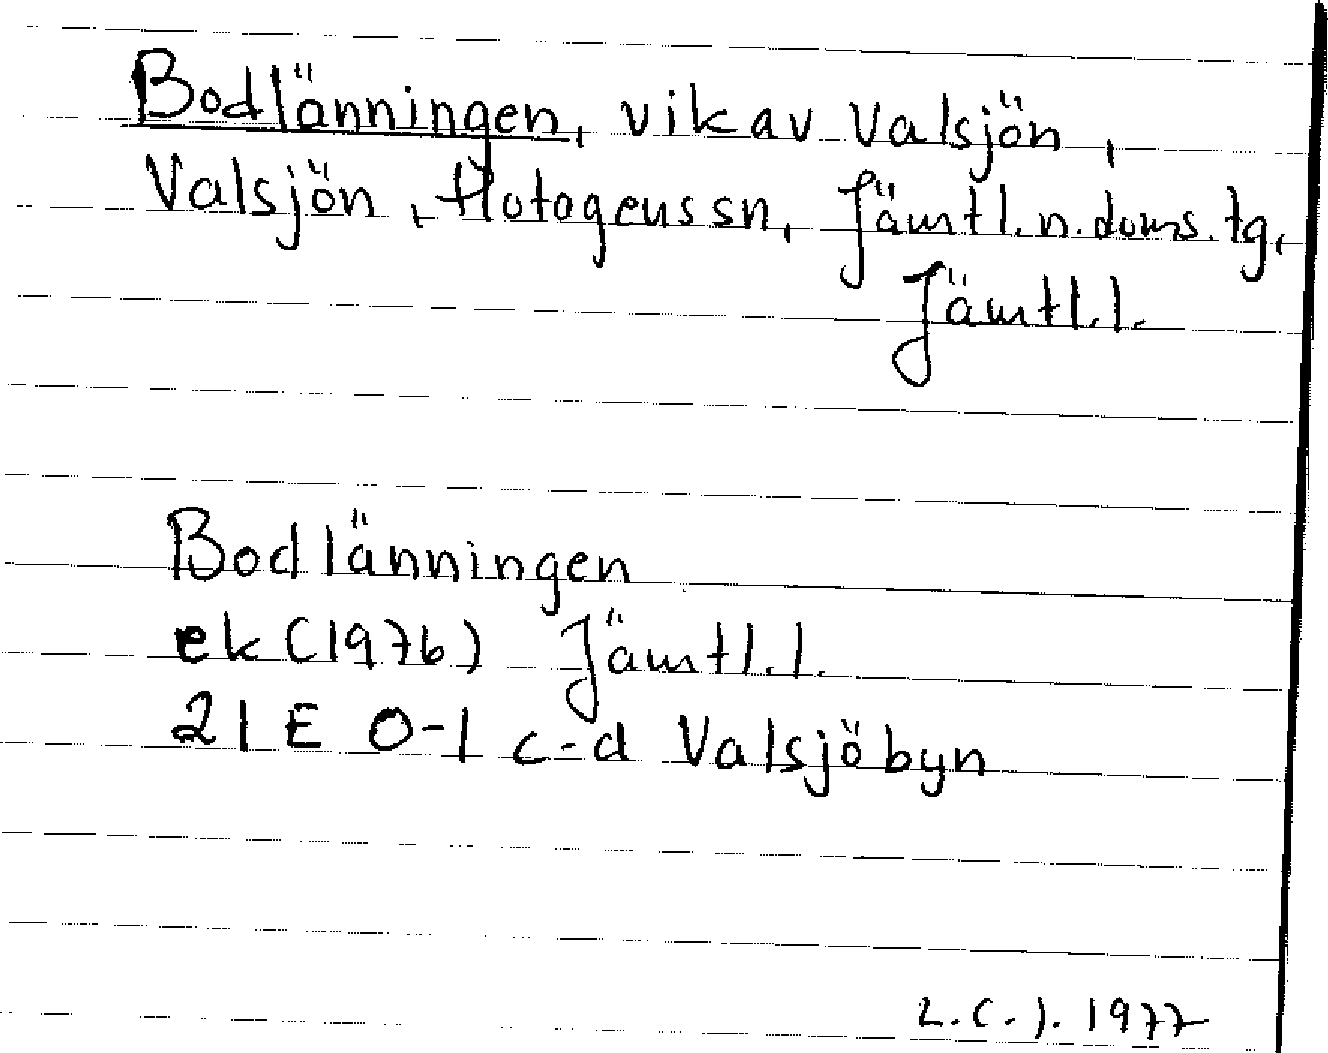 Bodlänningen, vik av Valsjön,
Valsjön, Hotagens sn, Jämtl. n. doms. tg,
Jämtl. l.
Bodlänningen
ek (1976) Jämtl. l.
21 E 0-1 c-d Valsjöbyn
L.C.J. 1977